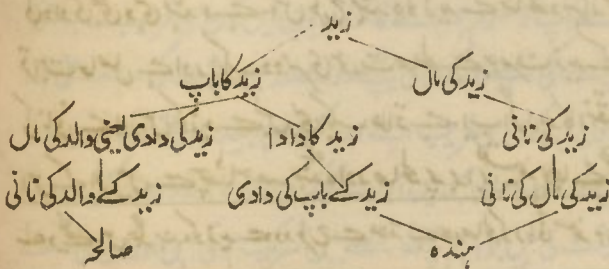 زید
زید کا باپ زید کی ماں
زید کی دادی یعنی والد کی ماں زید کا دادا زید کی نانی
زید کے والد کی نانی زید کے باپ کی دادی زید کی ماں کی نانی
صالحہ ہندہ